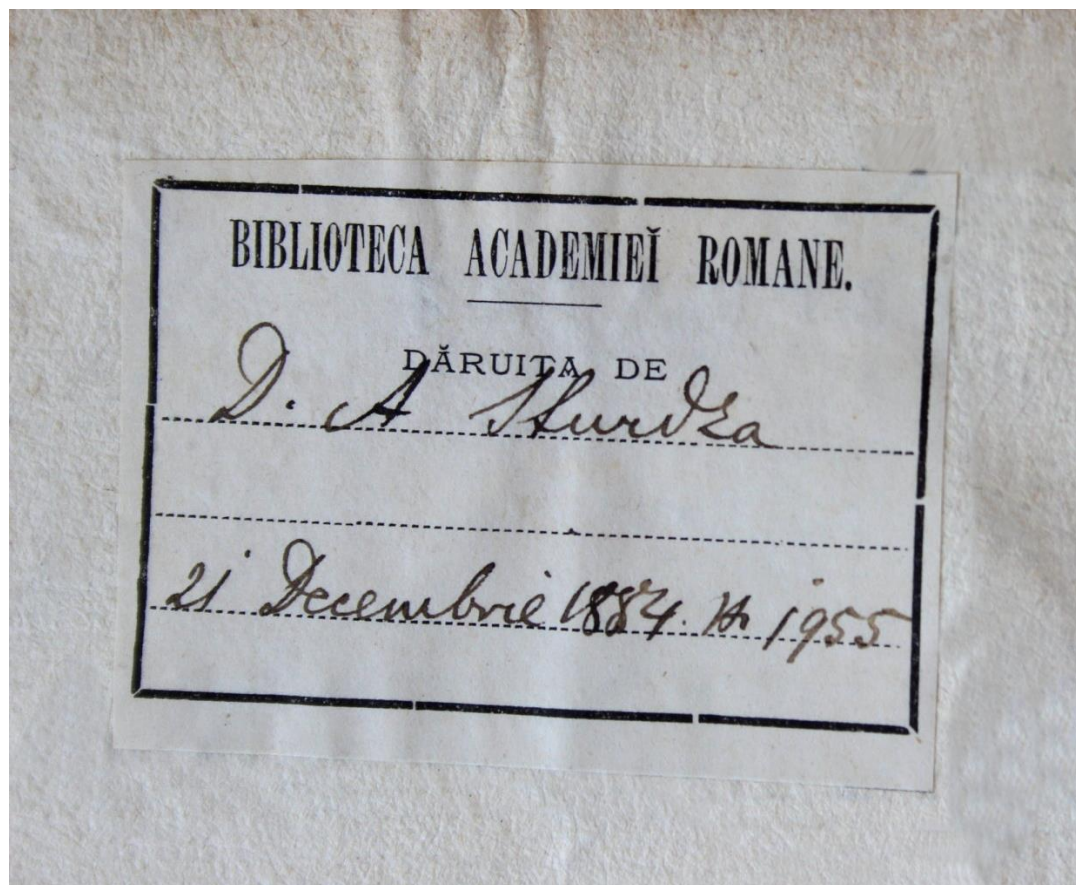 BIBLIOTECA ACADEMIEĬ ROMANE.
DĂRUITA DE
D. A Sturdza
21 Decembrie 1884. 1955